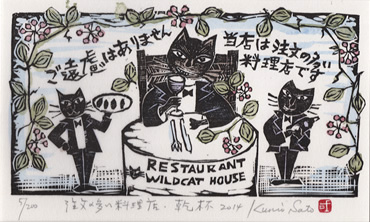 当店は注文の多い
料理店です
ご遠慮はありません
RESTAURANT
WILDCAT HOUSE
5/200 注文の多い料理店・乾杯 2014 Kunio Sato